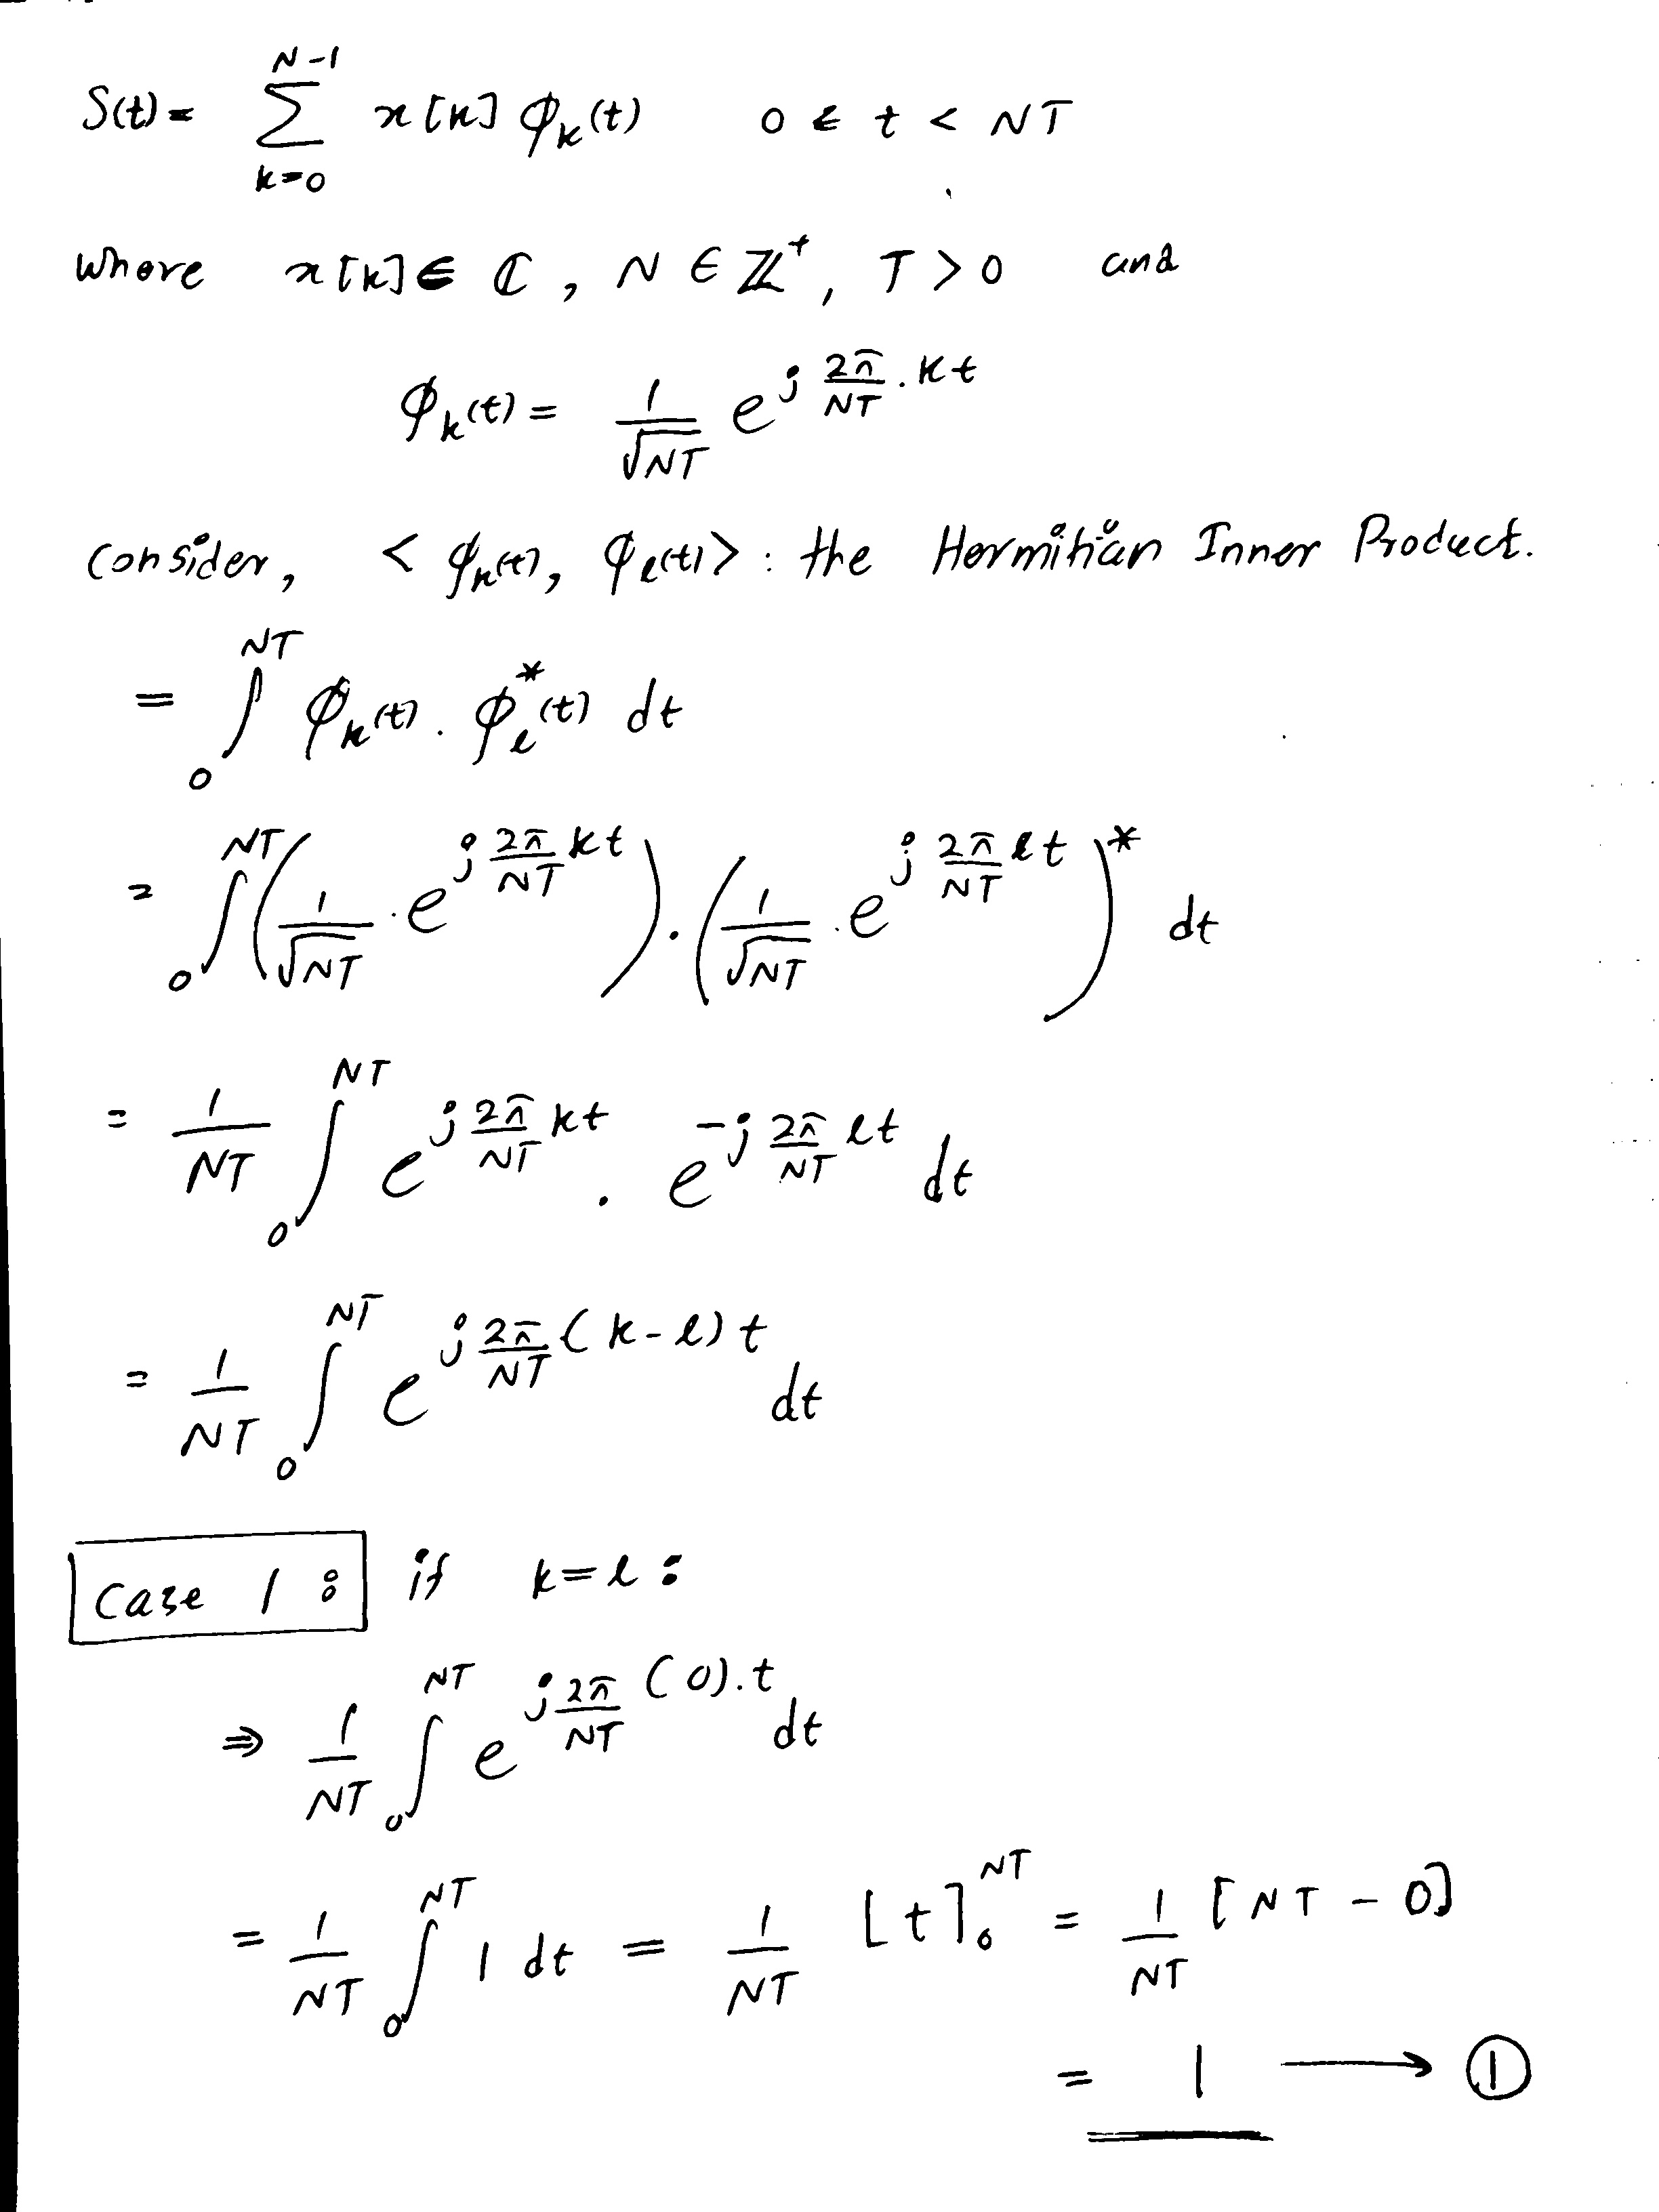 S(t) = \sum_{k=0}^{N-1} x[k] \phi_k(t)   0 ≤ t < NT
where x[k] ∈ ℂ, N ∈ ℤ^+, T > 0 and
\phi_k(t) = \frac{1}{\sqrt{NT}} e^{j \frac{2π}{NT} . kt}
Consider, < \phi_k(t), \phi_l(t) > : the Hermitian Inner Product.
= \int_0^{NT} \phi_k(t) . \phi_l^*(t) dt
= \int_0^{NT} ( \frac{1}{\sqrt{NT}} . e^{j \frac{2π}{NT} kt} ) . ( \frac{1}{\sqrt{NT}} . e^{j \frac{2π}{NT} lt} )^* dt
= \frac{1}{NT} \int_0^{NT} e^{j \frac{2π}{NT} kt} . e^{-j \frac{2π}{NT} lt} dt
= \frac{1}{NT} \int_0^{NT} e^{j \frac{2π}{NT} (k-l) t} dt
Case 1 : if k = l :
⇒ \frac{1}{NT} \int_0^{NT} e^{j \frac{2π}{NT} (0).t} dt
= \frac{1}{NT} \int_0^{NT} 1 dt = \frac{1}{NT} [t]_0^{NT} = \frac{1}{NT} [NT - 0]
= 1 ⟶ ①